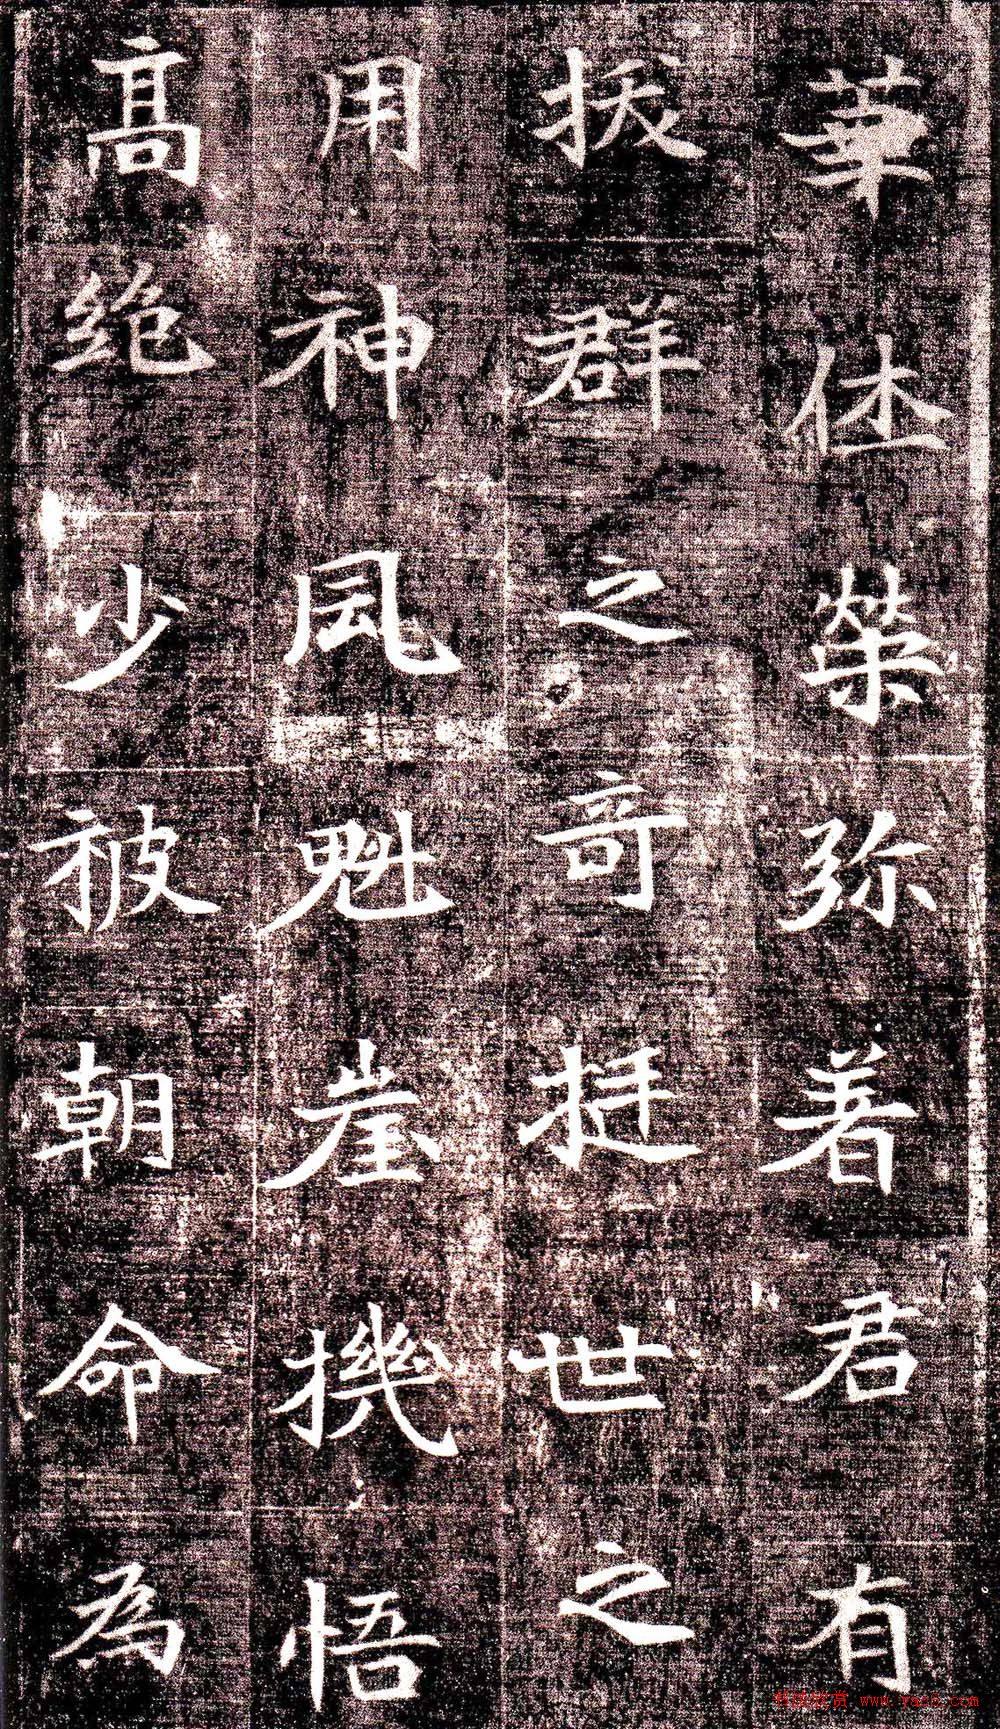 華体榮弥著君有
拔群之奇挺世之
用神風魁崖機悟
高絶少被朝命為
书法欣赏 www.yac8.com